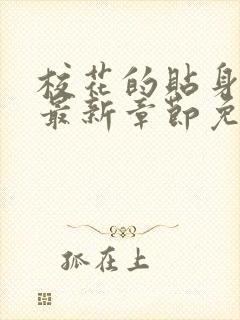 校花的贴身
最新章节免
孤在上